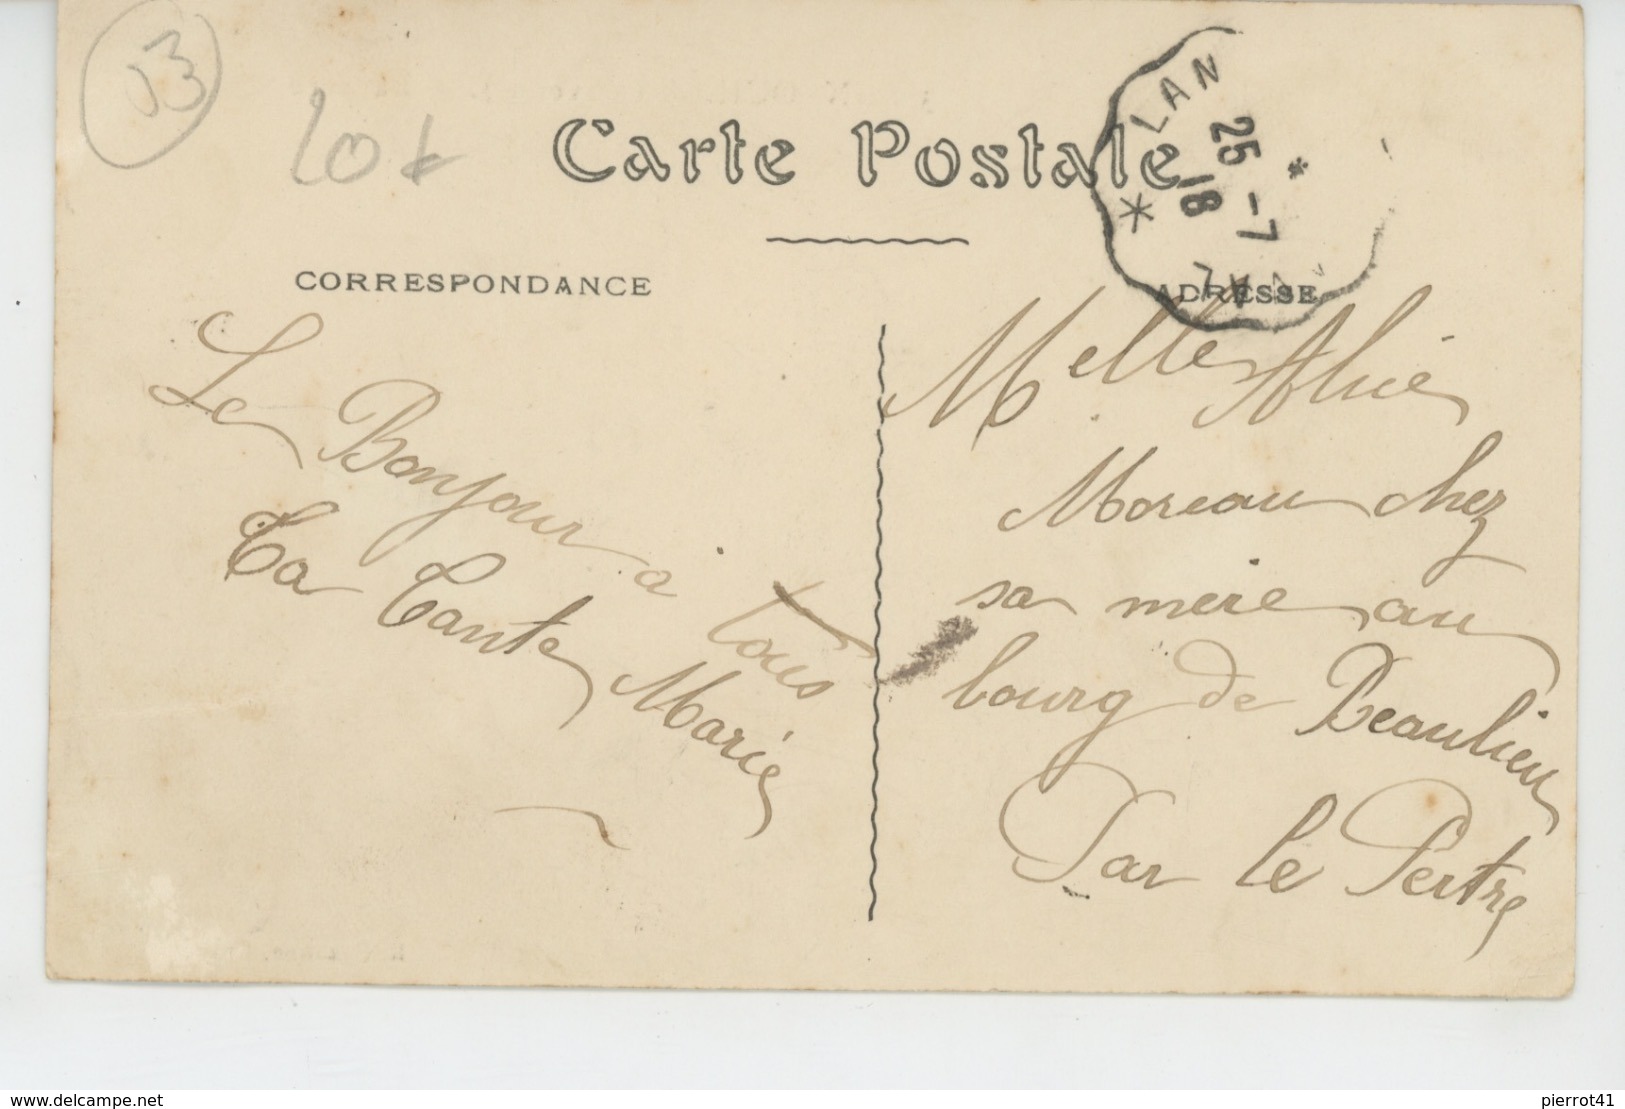 53
Carte Postale
LAN
25 -7
18
LAV
CORRESPONDANCE
ADRESSE
Le Bonjour à tous
Ta Tante Marie
Melle Alice
Moreau chez
sa mère au
bourg de Beaulieu
Par le Pertre
www.delcampe.net
pierrot41